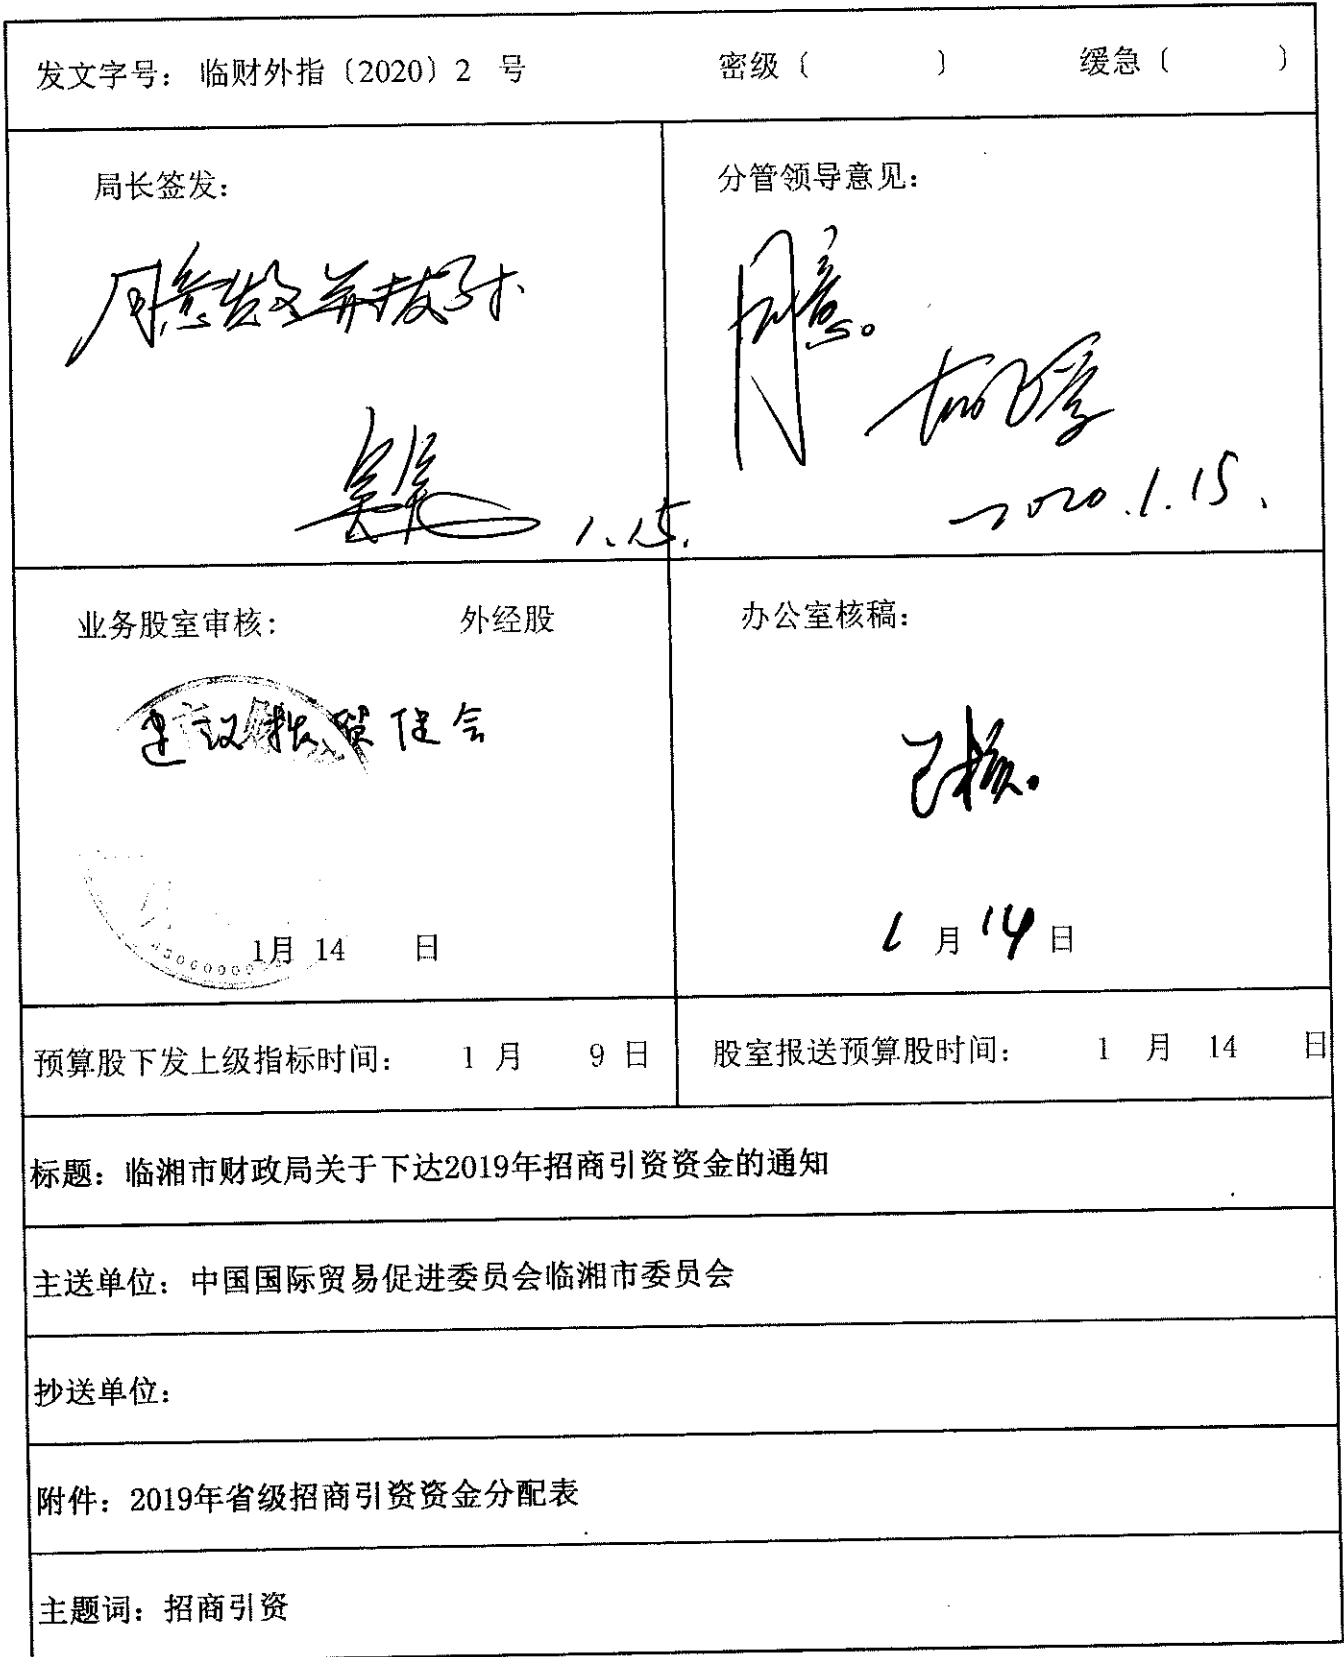 发文字号：临财外指〔2020〕2 号 密级〔 〕 缓急〔 〕
局长签发：
同意发文并拨付
1.15.
分管领导意见：
同意。
2020.1.15.
业务股室审核： 外经股
建议拨贸促会
1月 14 日
办公室核稿：
已核。
1 月 14 日
预算股下发上级指标时间： 1 月 9 日
股室报送预算股时间： 1 月 14 日
标题：临湘市财政局关于下达2019年招商引资资金的通知
主送单位：中国国际贸易促进委员会临湘市委员会
抄送单位：
附件：2019年省级招商引资资金分配表
主题词：招商引资